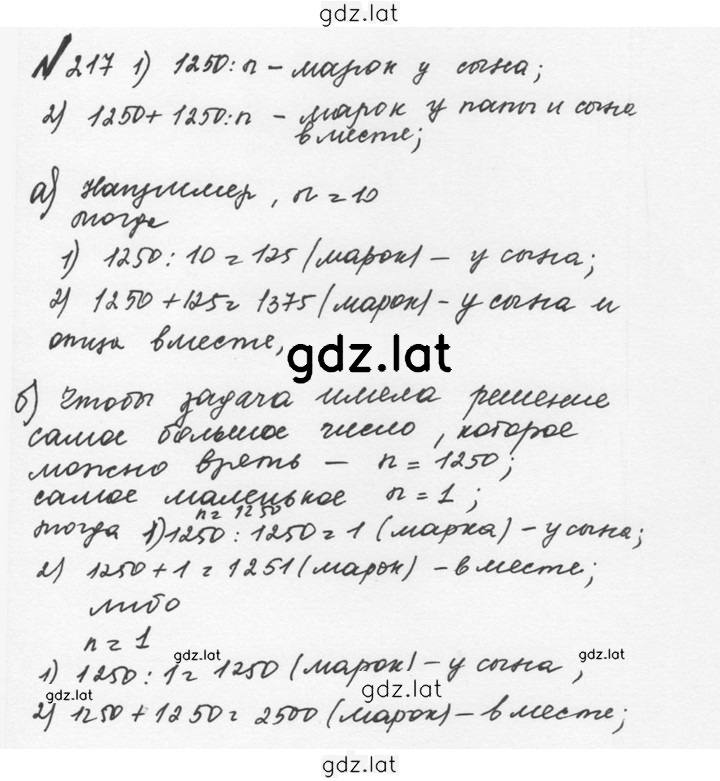 gdz.lat
№217 1) 1250:n - марок у сына;
2) 1250+1250:n - марок у папы и сына
вместе;
а) Например, n=10
тогда
1) 1250:10=125 (марок) - у сына;
2) 1250+125=1375 (марок) - у сына и
отца вместе,
gdz.lat
б) Чтобы задача имела решение
самое большое число, которое
можно взять - n=1250;
самое маленькое n=1;
n=1250
тогда 1) 1250:1250=1 (марка) - у сына;
2) 1250+1=1251 (марок) - вместе;
либо
n=1
gdz.lat
gdz.lat
1) 1250:1=1250 (марок) - у сына,
gdz.lat
gdz.lat
2) 1250+1250=2500 (марок) - вместе;
gdz.lat